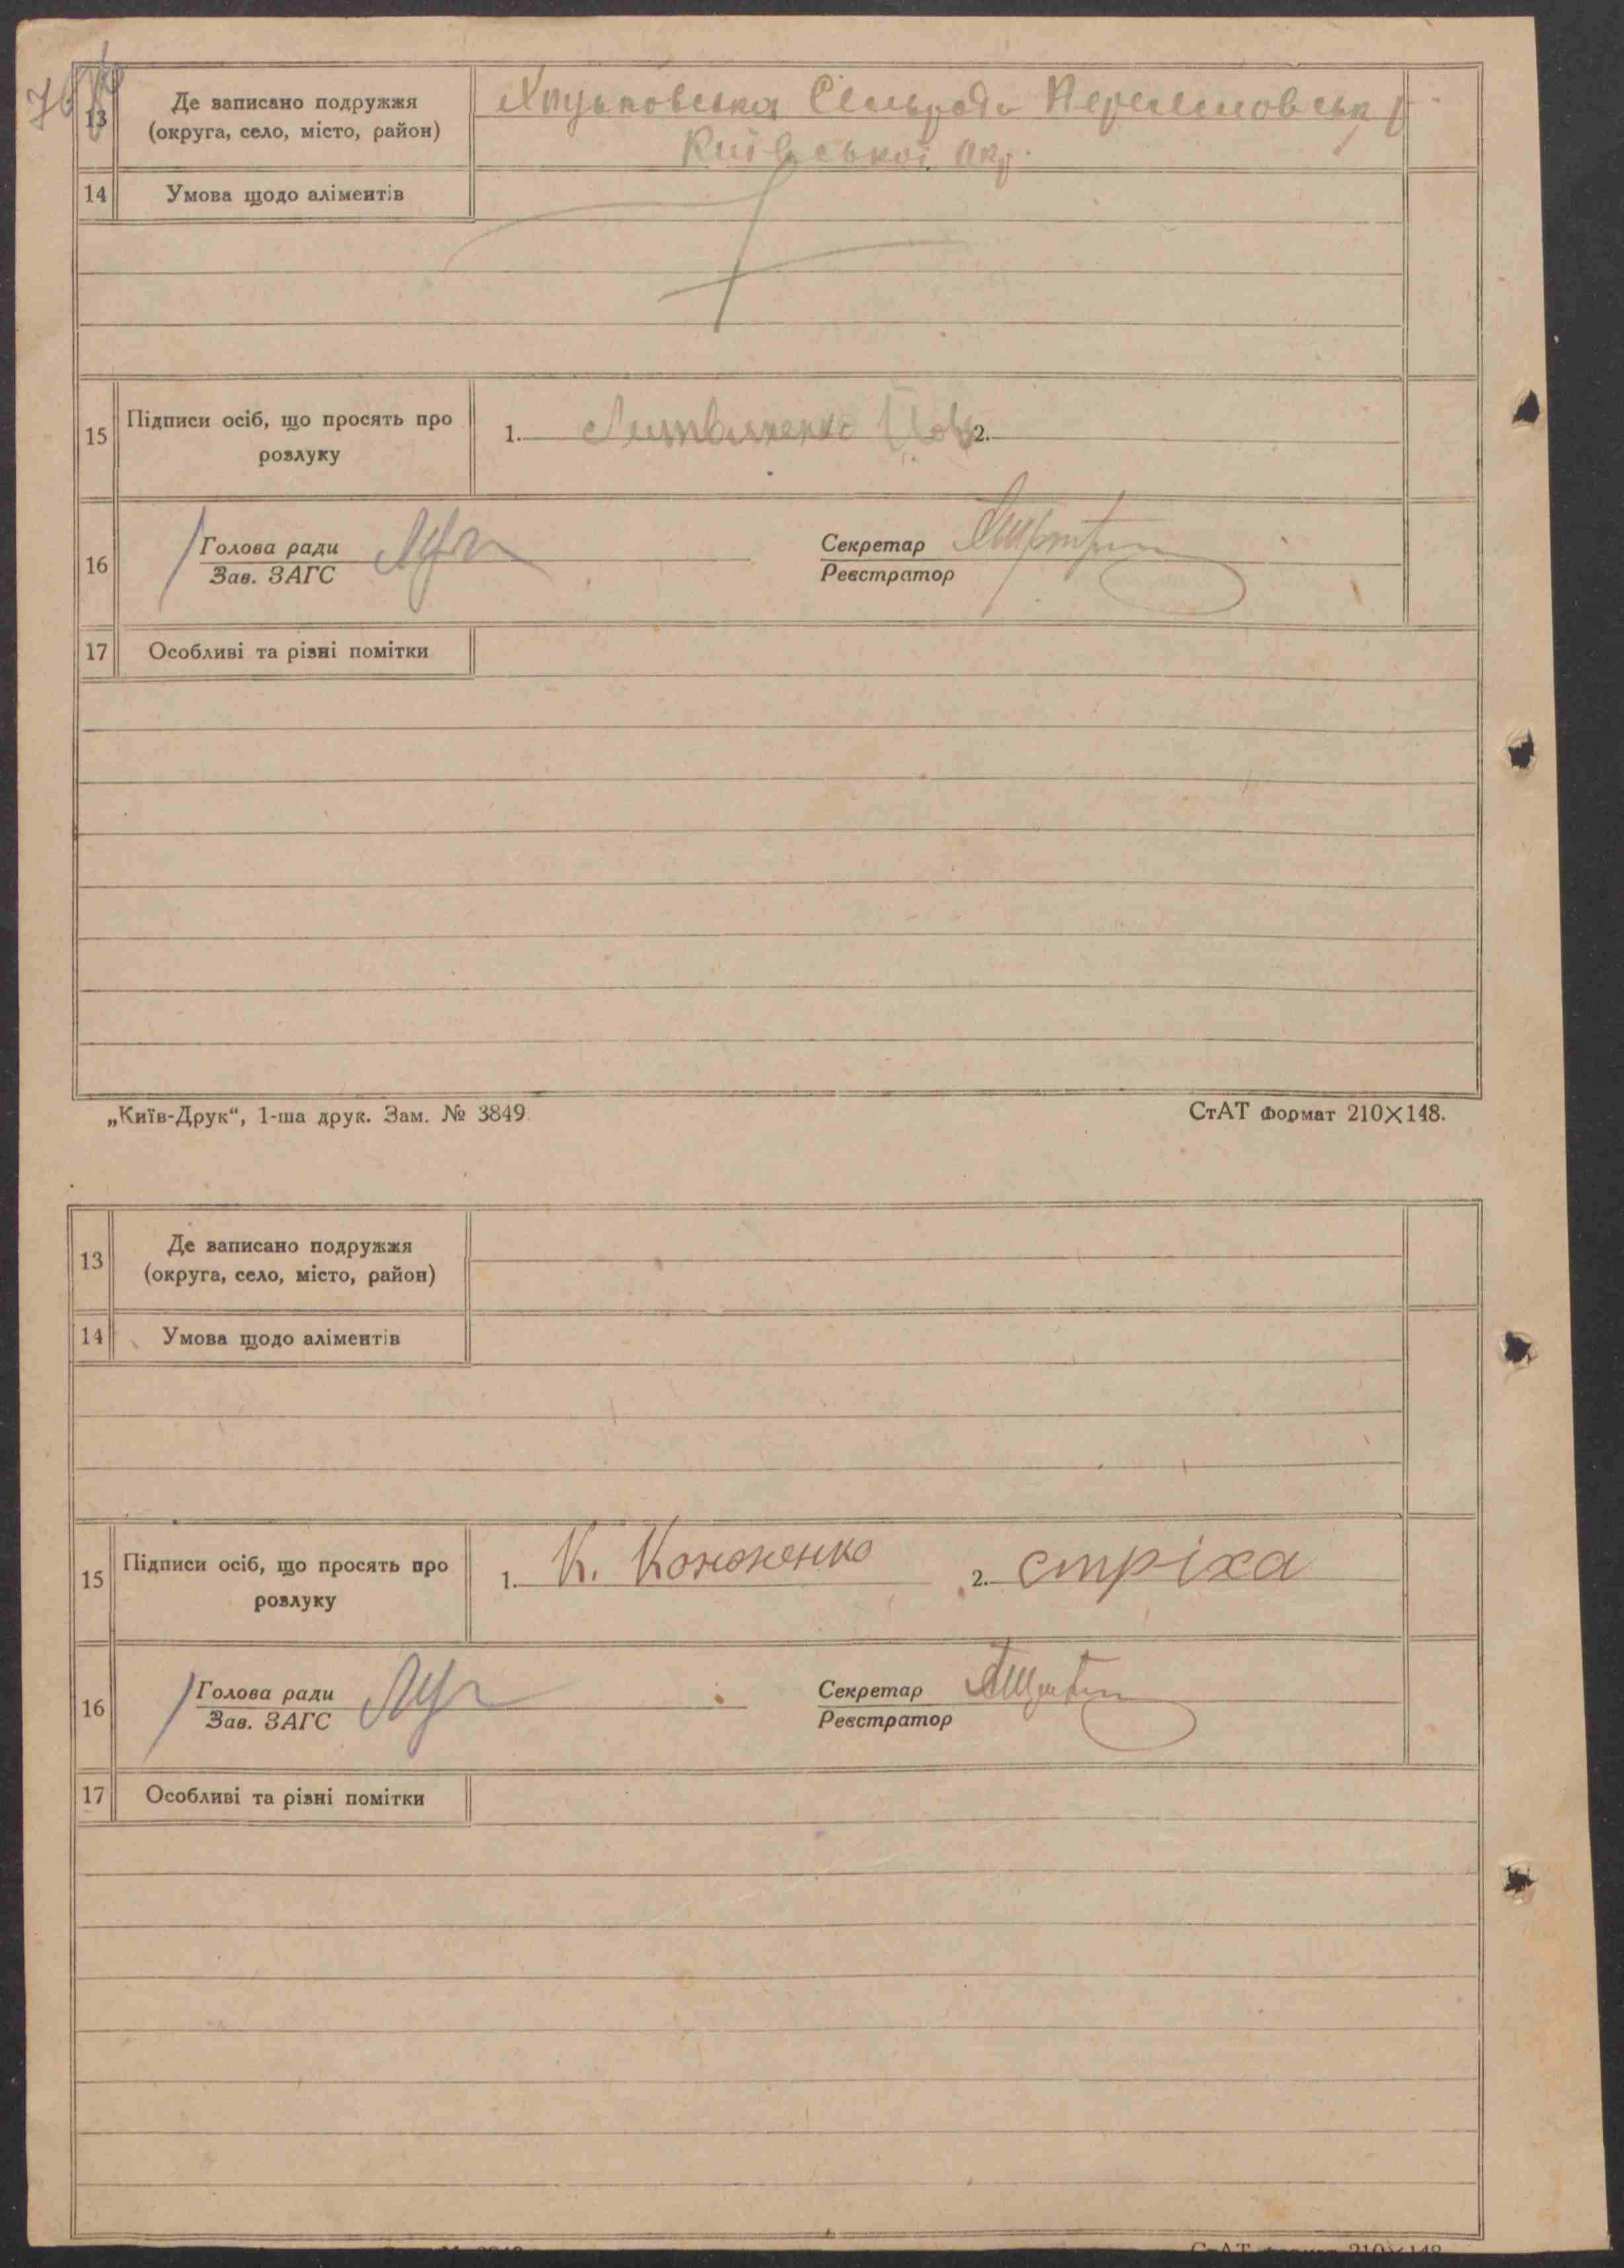 13
Де записано подружжя
(округа, село, місто, район)
Сільради
Київської окр.
14 Умова щодо аліментів
15
Підписи осіб, що просять про
розлуку
1. Литвиненко 2.
16
Голова ради
Зав. ЗАГС
Секретар
Реєстратор
17 Особливі та різні помітки
„Київ-Друк“, 1-ша друк. Зам. № 3849. СтАТ формат 210×148.
13
Де записано подружжя
(округа, село, місто, район)
14 Умова щодо аліментів
15
Підписи осіб, що просять про
розлуку
1. К. Кононенко 2. стріха
16
Голова ради
Зав. ЗАГС
Секретар
Реєстратор
17 Особливі та різні помітки
СтАТ формат 210×148